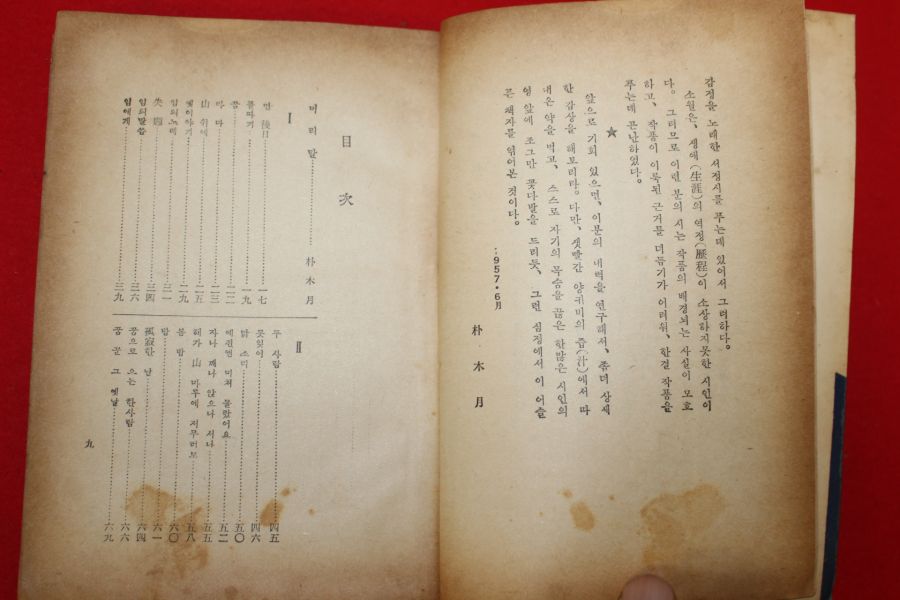 감정을 노래한 서정시를 푸는데 있어서 그러하다。
소월은、생애(生涯)의 역정(歷程)이 소상하지못한 시인이
다。그러므로 이런 분의 시는 작품의 배경되는 사실이 모호
하고、작품이 이룩된 근거를 더듬기가 어려워、한결 작품을
푸는데 곤난하였다。
★
앞으로 기회 있으면、이분의 내력을 연구해서、좀더 상세
한 감상을 해보리라。다만、샛빨간 양귀비의 즙(汁)에서 따
내온 약을 먹고、스스로 자기의 목숨을 끊은 한많은 시인의
영 앞에 조그만 꽃다발을 드리듯、그런 심정에서 이 어슬
픈 책자를 엮어본 것이다。
1957·6月
朴木月
目次
머리말 朴木月
I
먼 後日 一七
풀따기 一九
꿈 二二
마 마 二三
山 위에 二五
옛이야기 二九
님의노래 三一
失題 三四
님의말씀 三六
님에게 三九
II
두 사람 四五
못잊어 四六
닭 소리 五〇
예전엔 미쳐 몰랐어요 五二
자나 깨나 앉으나 서나 五五
해가 山 마루에 저무러도 五八
봄 밤 六〇
밤 六一
孤寂한 날 六四
꿈으로 오는 한사람 六六
꿈꾼 그 옛날 六九
九